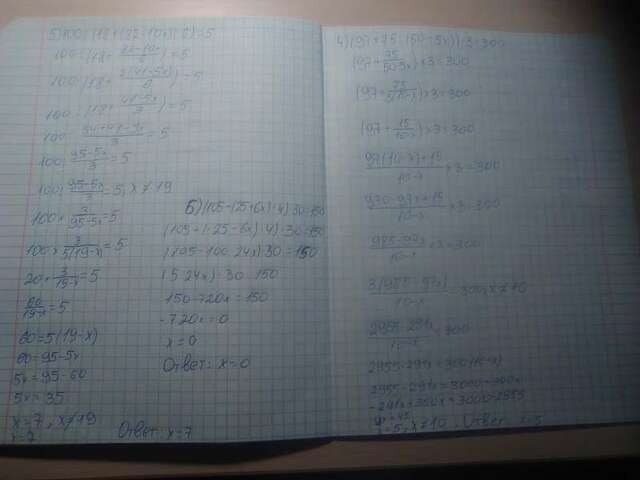 5) 100:(18+(82-10x):6)=5
100:(18+\frac{82-10x}{6})=5
100:(18+\frac{2(41-5x)}{6})=5
100:(18+\frac{41-5x}{3})=5
100:\frac{54+41-5x}{3}=5
100:\frac{95-5x}{3}=5
100:\frac{95-5x}{3}=5, x≠19
100×\frac{3}{95-5x}=5
100×\frac{3}{5(19-x)}=5
20×\frac{3}{19-x}=5
\frac{60}{19-x}=5
60=5(19-x)
60=95-5x
5x=95-60
5x=35
x=7, x≠19
x=7
Ответ: x=7
6) (105-(25+6x)·4)·30=150
(105+(-25-6x)·4)·30=150
(105-100-24x)·30=150
(5-24x)·30=150
150-720x=150
-720x=0
x=0
Ответ: x=0
4) (97+75:(50-5x))·3=300
(97+\frac{75}{50-5x})×3=300
(97+\frac{75}{5(10-x)})×3=300
(97+\frac{15}{10-x})×3=300
\frac{97(10-x)+15}{10-x}×3=300
\frac{970-97x+15}{10-x}×3=300
\frac{985-97x}{10-x}×3=300
\frac{3(985-97x)}{10-x}=300, x≠10
\frac{2955-291x}{10-x}=300
2955-291x=300(10-x)
2955-291x=3000-300x
-291x+300x=3000-2955
9x=45
x=5, x≠10. Ответ: x=5